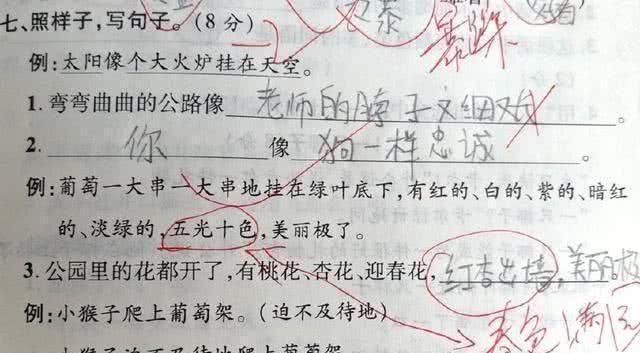 七、照样子，写句子。（8分） -2 暴躁
例：太阳像个大火炉挂在天空。
1. 弯弯曲曲的公路像老师的脖子又细又
2. 你像狗一样忠诚。
例：葡萄一大串一大串地挂在绿叶底下，有红的、白的、紫的、暗红
的、淡绿的，五光十色，美丽极了。
3. 公园里的花都开了，有桃花、杏花、迎春花，红杏出墙，美丽极
例：小猴子爬上葡萄架。（迫不及待地） 春色满园
小猴子迫不及待地爬上葡萄架